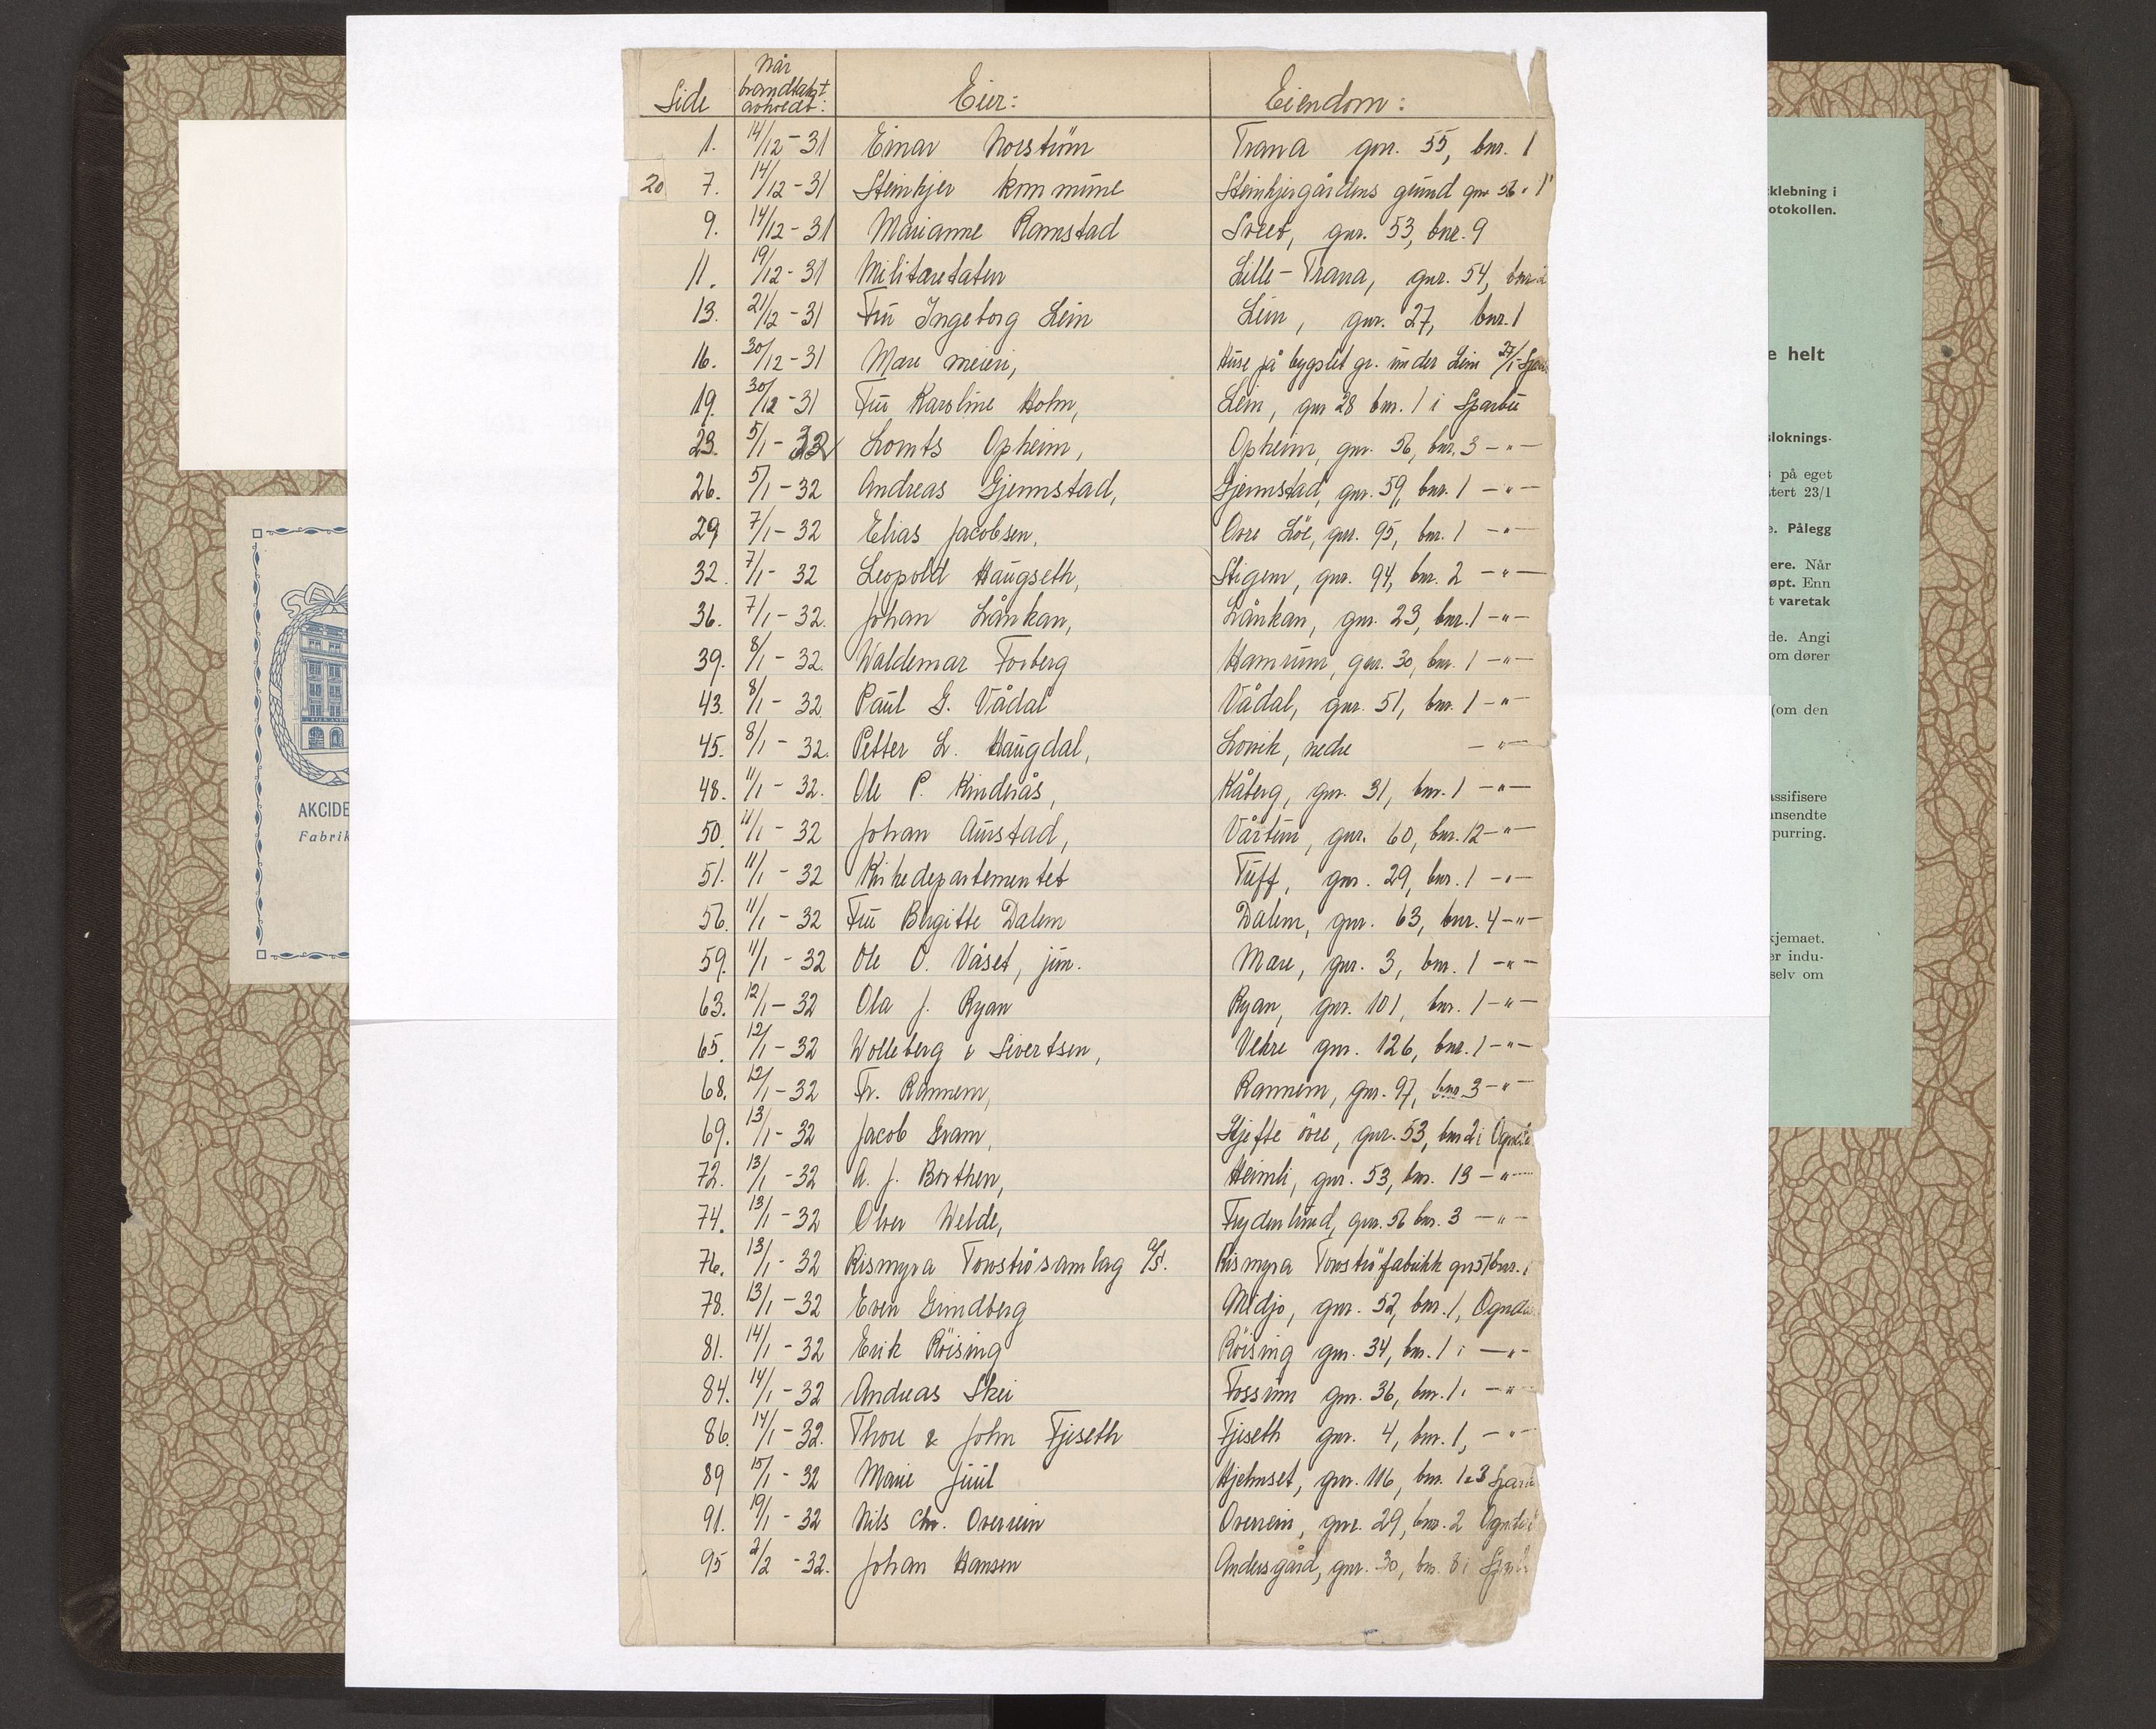 Side Når brandtakst avholdt: Eier: Eiendom:
1. 14/12-31 Einar Norström Trana gnr. 55, bnr. 1
20 7. 14/12-31 Steinkjer kommune Steinkjergårdens grund gnr 56 - 1
9. 14/12-31 Marianne Ramstad Sveet, gnr. 53, bnr. 9
11. 19/12-31 Militæretaten Lille-Trana, gnr. 54, bnr. 2
13. 21/12-31 Fru Ingeborg Lein Lein, gnr. 27, bnr. 1
16. 30/12-31 Mære meieri, Huse på bygslet gr. under Lein 27/1 - Spar
19. 30/12-31 Fru Karoline Holm, Lein, gnr 28 bnr. 1 i Sparbu
23. 5/1-32 Lornts Opheim, Opheim, gnr. 56, bnr. 3 -"-
26. 5/1-32 Andreas Gjermstad, Gjermstad, gnr. 59, bnr. 1 -"-
29 7/1-32 Elias Jacobsen, Övre Löe, gnr. 95, bnr. 1 -"-
32. 7/1-32 Leopold Haugseth, Stigem, gnr. 94, bnr. 2 -"-
36. 7/1-32. Johan Lånkan, Lånkan, gnr. 23, bnr. 1 -"-
39. 8/1-32. Waldemar Forberg Hamrum, gnr. 30, bnr. 1 -"-
43. 8/1-32 Paul G. Vådal Vådal, gnr. 51, bnr. 1 -"-
45. 8/1-32. Petter L. Haugdal, Lorvik, nedre -"-
48. 11/1-32. Ole P. Kinderås, Kåberg, gnr. 31, bnr. 1 -"-
50. 11/1-32 Johan Austad, Vårtun, gnr. 60, bnr. 12 -"-
51. 11/1-32 Kirkedepartementet Tuff, gnr. 29, bnr. 1 -"-
56. 11/1-32 Fru Birgitte Dalem Dalem, gnr. 63, bnr. 4 -"-
59. 11/1-32 Ole O. Våset, jun. Mære, gnr. 3, bnr. 1 -"-
63. 12/1-32 Ola J. Ryan Ryan, gnr. 101, bnr. 1 -"-
65. 12/1-32 Wolleberg & Sivertsen, Vekre gnr. 126, bnr. 1 -"-
68. 12/1-32 Fr. Rannem, Rannem, gnr. 97, bnr 3 -"-
69. 13/1-32 Jacob Gram, Skjefte övre, gnr. 53, bnr 2 i Ogndal
72. 13/1-32 A. J. Borthen, Heimli, gnr. 53, bnr. 13 -"-
74. 13/1-32 Olver Welde, Frydenlund, gnr. 56 bnr. 3 -"-
76. 13/1-32 Rismyra Torvströsamlag A/S. Rismyra Torvströfabrikk gnr 51 bnr. 1
78. 13/1-32 Even Grundberg Midjo, gnr. 52, bnr. 1, Ogndal
81. 14/1-32 Erik Röising Röising gnr. 34, bnr. 1 i -"-
84. 14/1-32 Andreas Skei Fossum gnr. 36, bnr. 1. -"-
86. 14/1-32. Thore & John Fjeseth Fjeseth gnr. 4, bnr. 1, -"-
89 15/1-32 Marie Juul Hjelmset, gnr. 116, bnr. 1&3 Sparbu
91. 19/1-32 Nils Chr. Overrein Overrein, gnr. 29, bnr. 2 Ogndal
95 2/2-32. Johan Hansen Andersgård, gnr. 30, bnr. 8 i Sparb
AKCIDE
Fabrik
klebning i
otokollen.
e helt
sloknings-
på eget
tert 23/1
e. Pålegg
ere. Når
øpt. Enn
t varetak
de. Angi
om dører
(om den
assifisere
ansendte
purring.
kjemaet.
er indu-
selv om